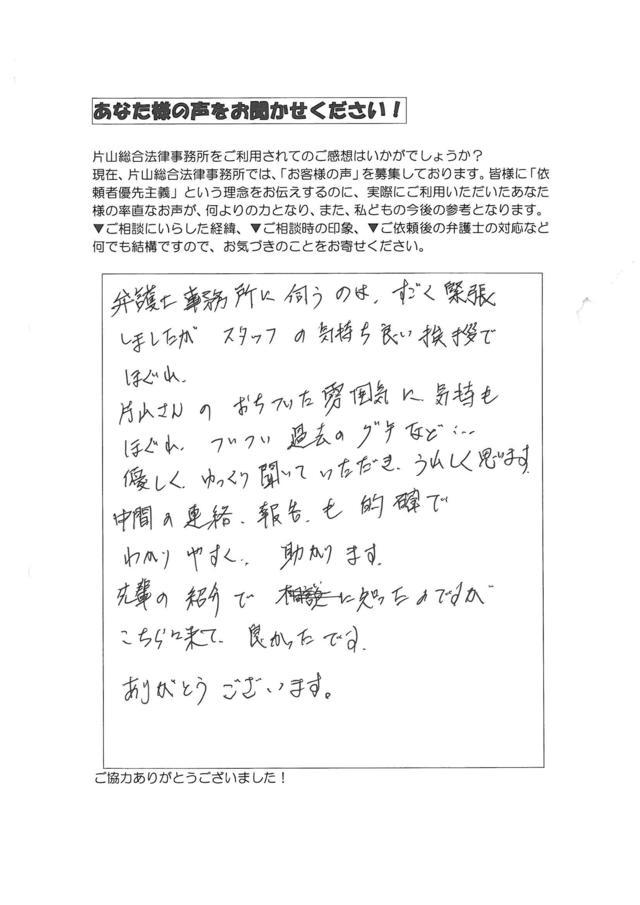 あなた様の声をお聞かせください！
片山総合法律事務所をご利用されてのご感想はいかがでしょうか？
現在、片山総合法律事務所では、「お客様の声」を募集しております。皆様に「依
頼者優先主義」という理念をお伝えするのに、実際にご利用いただいたあなた
様の率直なお声が、何よりの力となり、また、私どもの今後の参考となります。
▼ご相談にいらした経緯、▼ご相談時の印象、▼ご依頼後の弁護士の対応など
何でも結構ですので、お気づきのことをお寄せください。
弁護士事務所に伺うのは、すごく緊張
しましたが スタッフの気持ち良い挨拶で
ほぐれ、
片山さんの おちついた雰囲気に気持も
ほぐれ、ついつい 過去のグチなど…
優しく、ゆっくり聞いていただき、うれしく思います。
仲間の連絡、報告、も 的確で
わかりやすく、 助かります。
先輩の紹介で に知ったのですが
こちらに来て、良かったです。
ありがとうございます。
ご協力ありがとうございました！